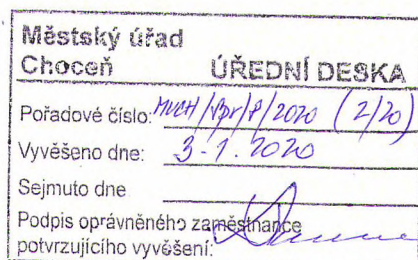 Městský úřad
Choceň ÚŘEDNÍ DESKA
Pořadové číslo: MUCH/Vpr/P/2020 (2/20)
Vyvěšeno dne: 3-1. 2020
Sejmuto dne
Podpis oprávněného zaměstnance
potvrzujícího vyvěšení: